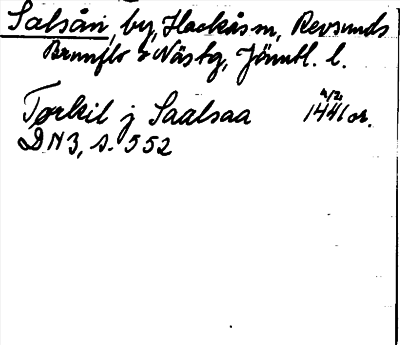 Salsån, by, Hackås sn, Revsunds
Brunflo o Näs tg, Jämtl. l.
Tørkil j Saalsaa 4/2 1441 or.
DN 3, s. 552